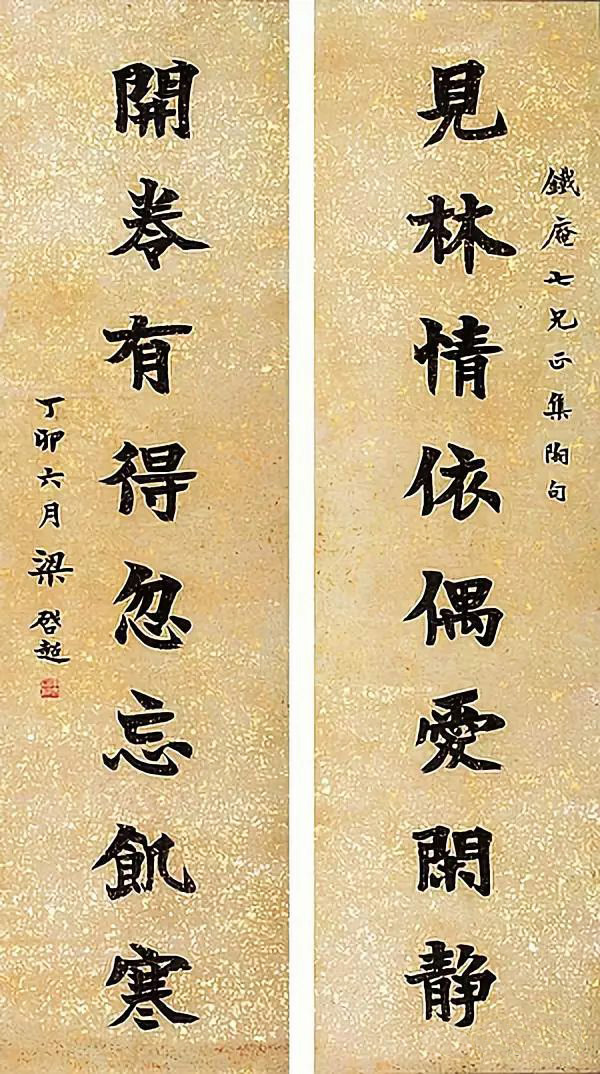 鐵庵七兄正集陶句
見林情依偶愛閑靜
開卷有得忽忘飢寒
丁卯六月梁啓超